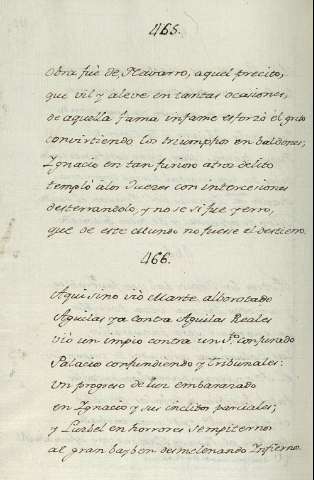 465.
Obra fuè de Navarro, aquel precito,
que vil y aleve en tantas ocasiones,
de aquella fama infame esforzò el grito
convirtiendo los triumphos en baldones;
Ygnacio en tan furioso atroz delito
templò à los Juezes con intercesiones
desterrandolo, y no se si fue yerro,
que de este Mundo no fuese el destierro.
466.
Aqui sino viò Marte alborotado
Aguilas ya contra Aguilas Reales
viò un impio contra un Sto. conjurado
Palacio confundiendo y Tribunales:
Un progreso de luz embarazado
en Ygnacio y sus inclitos parciales;
y Luzbel en horrores sempiterno
al gran bayben desmelenando Infierno.